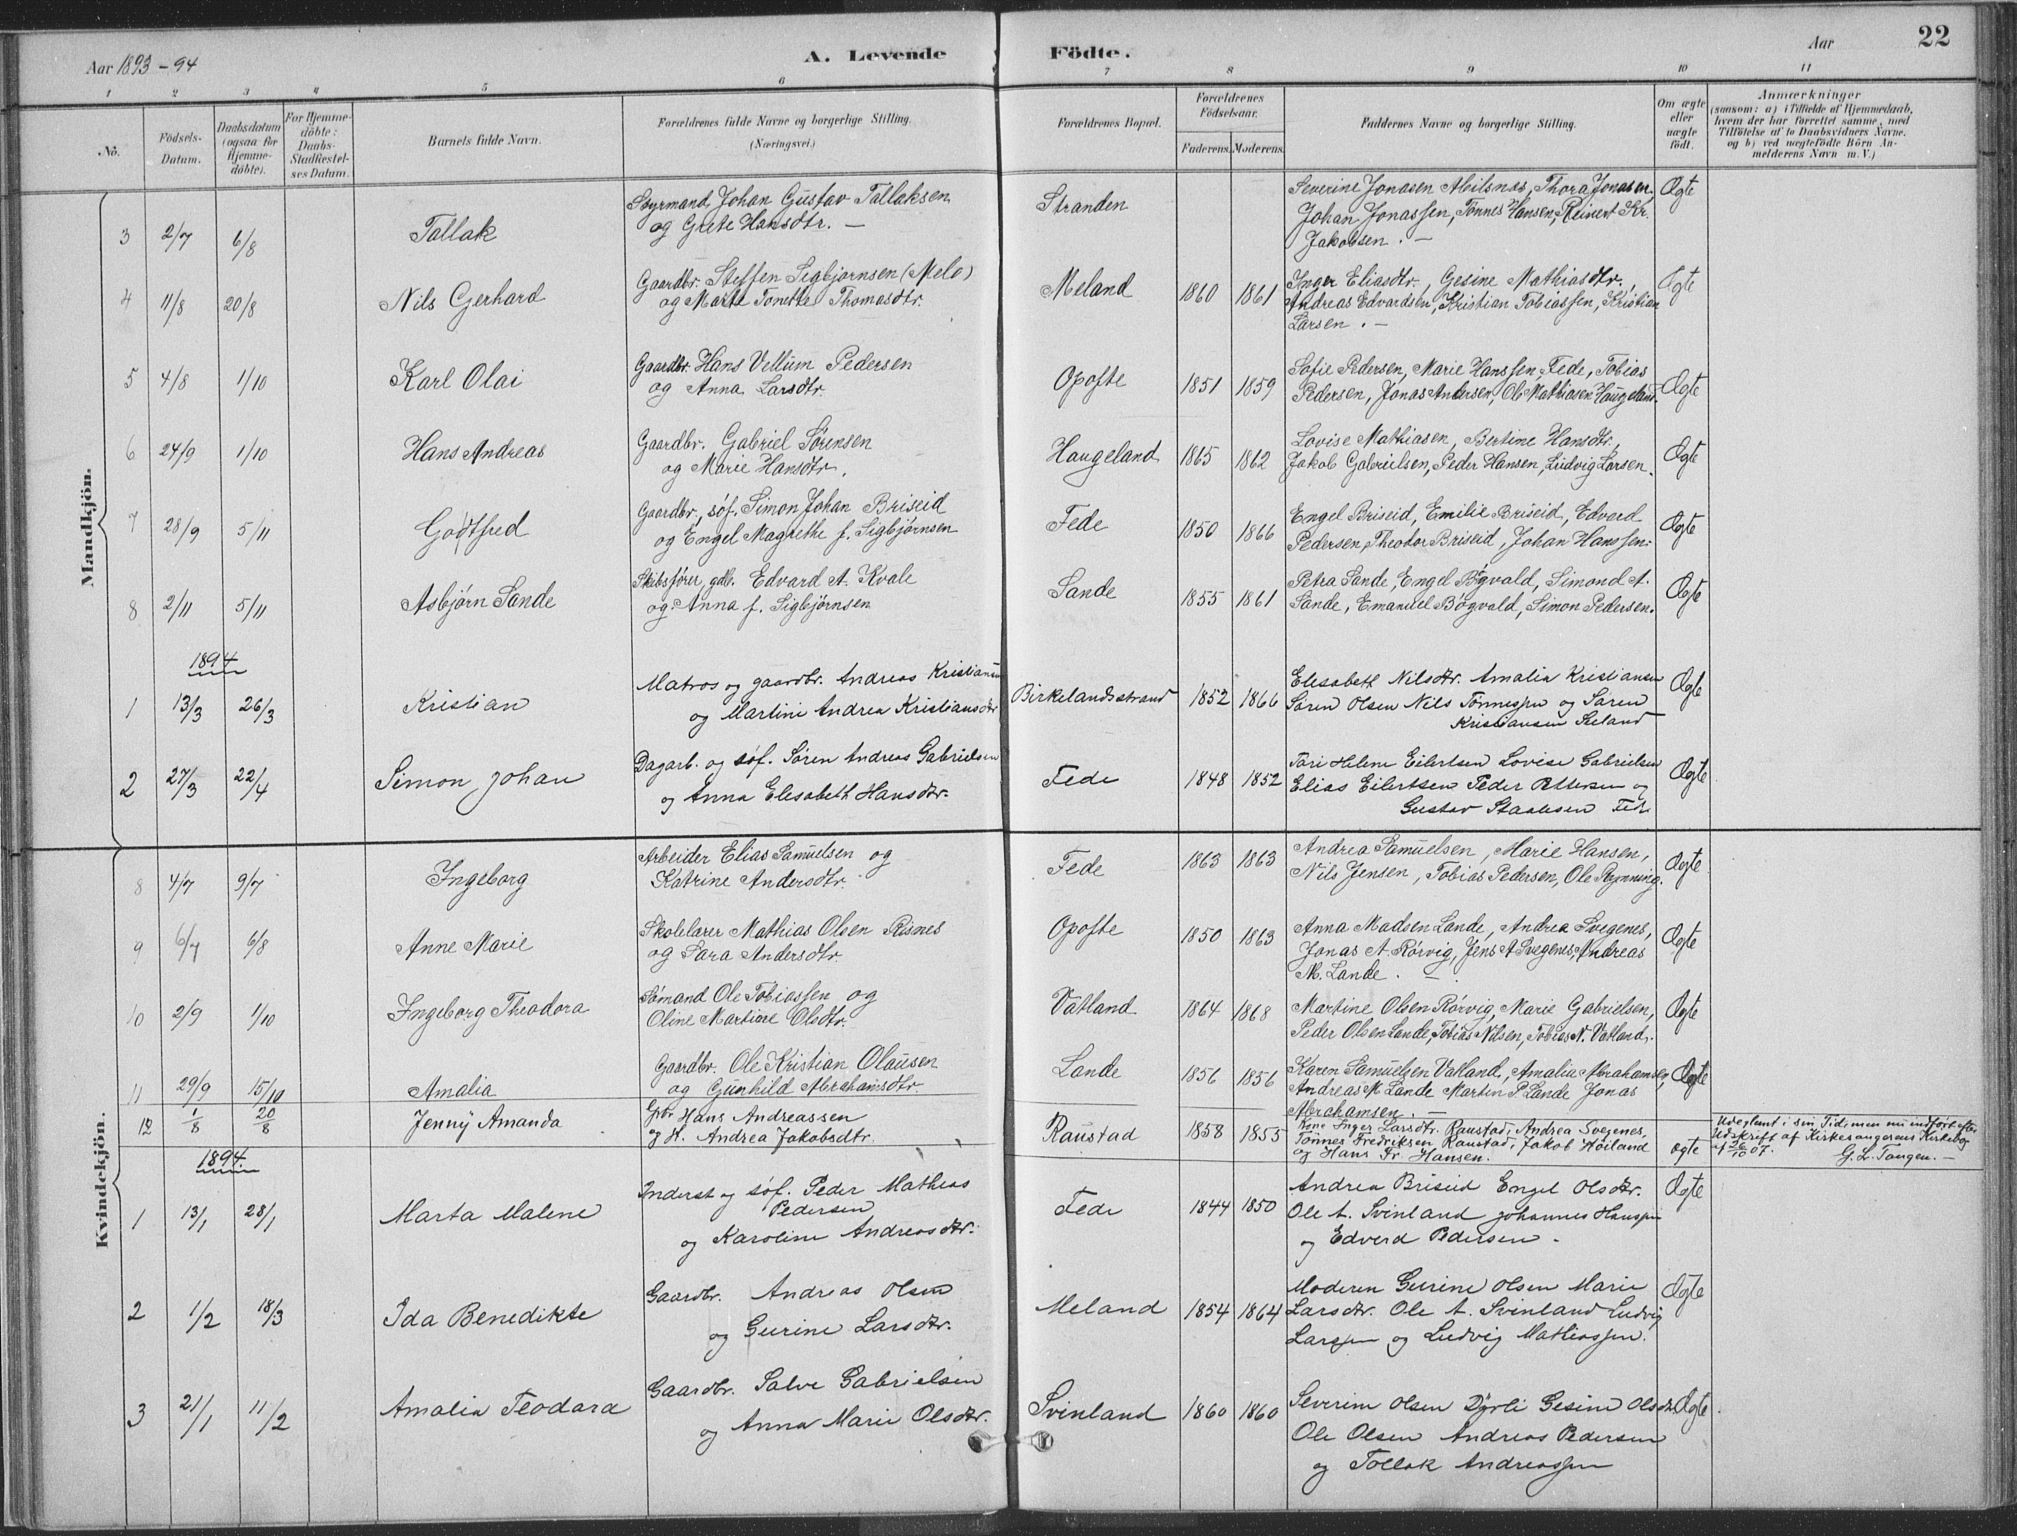 Aar 1893-94
A. Levende Födte.
Aar
22
1 2 3 4 5 6 7 8 9 10 11
No.
Födsels-Datum.
Daabsdatum (ogsaa for Hjemme-döbte).
For Hjemme-döbte: Daabs-Stadfæstel-ses Datum.
Barnets fulde Navn.
Forældrenes fulde Navne og borgerlige Stilling. (Næringsvei.)
Forældrenes Bopæl.
Forældrenes Födselsaar.
Faderens. Moderens.
Faddernes Navne og borgerlige Stilling.
Om ægte eller uægte födt.
Anmærkninger
(saasom: a) i Tilfælde af Hjemmedaab, hvem der har forrettet samme, med Tilföielse af to Daabsvidners Navne. og b) ved uægtefödte Börn An-melderens Navn m. V.)
Mandkjön.
3 2/7 6/8 Tallak
Styrmand Johan Gustav Tallaksen
og Grete Hansdtr. —
Stranden
Severine Jonasen Abilsnæs, Thora Jonasen,
Johan Jonassen, Tønnes Hansen, Reinert Kr.
Jakobsen. —
Ægte
4 11/8 20/8 Nils Gerhard
Gaardbr. Steffen Sigbjørnsen (Mele)
og Marte Tonette Thomasdtr.
Meland 1860 1861
Inger Eliasdtr., Gesine Mathiasdtr.,
Andreas Edvardsen, Kristian Tobiassen, Kristian
Larsen. —
Ægte
5 4/8 1/10 Karl Olai
Gaardbr. Hans Vellum Pedersen
og Anna Larsdtr.
Opofte 1851 1859
Sofie Pedersen, Marie Hanssen Fede, Tobias
Pedersen, Jonas Andersen, Ole Mathiasen Haugeland.
Ægte
6 24/9 1/10 Hans Andreas
Gaardbr. Gabriel Sørensen
og Marie Hansdtr.
Haugeland 1865 1862
Lovise Mathiasen, Bertine Hansdtr.,
Jakob Gabrielsen, Peder Hansen, Ludvig Larsen.
Ægte
7 28/9 5/11 Godtfred
Gaardbr., søf. Simon Johan Briseid
og Engel Magrethe f. Sigbjørnsen
Fede 1850 1866
Engel Briseid, Emilie Briseid, Edvard
Pedersen, Theodor Briseid, Johan Hanssen.
Ægte
8 2/11 5/11 Asbjørn Sande
Skibsfører, gdb. Edvard A. Kvale
og Anna f. Sigbjørnsen
Sande 1855 1861
Petra Sande, Engel Bøgvald, Simond A.
Sande, Emanuel Bøgvald, Simon Pedersen.
Ægte
1894
1 13/3 26/3 Kristian
Matros og gaardbr. Andreas Kristiansen
og Martine Andrea Kristiansdtr
Birkelandsstrand 1852 1866
Elisabeth Nilsdtr. Amalia Kristiansen
Søren Olsen Nils Tønnessen og Søren
Kristiansen
Ægte
2 27/3 22/4 Simon Johan
Dagarb. og søf. Søren Andreas Gabrielsen
og Anna Elisabeth Hansdtr.
Fede 1848 1852
Tori Helene Eilertsen Lovise Gabrielsen
Elias Eilertsen Peder Pettersen og
Gustav Staalesen Fede
Ægte
Kvindekjön.
8 4/7 9/7 Ingeborg
Arbeider Elias Samuelsen og
Katrine Andersdtr.
Fede 1863 1863
Andrea Samuelsen, Marie Hansen,
Nils Jensen, Tobias Pedersen, Ole
Ægte
9 6/7 6/8 Anne Marie
Skolelærer Mathias Olsen Risnes
og Sara Andersdtr.
Opofte 1850 1863
Anna Madsen Lande, Andrea Svegenes,
Jonas A. Rørvig, Jens A Svegenes, Andreas
M. Lande. —
Ægte
10 2/9 1/10 Ingeborg Theodora
Sømand Ole Tobiassen og
Oline Martine Olsdtr.
Vatland 1864 1868
Martine Olsen Rørvig, Marie Gabrielsen,
Peder Olsen Lande, Tobias Nilsen, Tobias N. Vatland.
Ægte
11 29/9 15/10 Amalia
Gaardbr. Ole Kristian Olausen
og Gunhild Abrahamsdtr.
Lande 1856 1856
Karen Samuelsen Vatland, Amalia Abrahamsen,
Andreas M Lande Martin P. Lande Jonas
Abrahamsen. —
Ægte
12 1/8 20/8 Jenny Amanda
Gbr. Hans Andreassen
og H. Andrea Jakobsdtr.
Raustad 1858 1855
Kone Inger Larsdtr. Raustad, Andrea Svegenes,
Tønnes Fredriksen Raustad, Jakob Høiland
og Hans Fr. Hansen.
ægte
Udeglemt i sin Tid, men nu indført efter
Udskrift af Kirkesangerens Kirkebog
af 26/10 07. G. L. Tangen. —
1894
1 13/1 28/1 Marta Malene
Inderst og søf. Peder Mathias
Pedersen
og Karoline Andreasdtr.
Fede 1844 1850
Andrea Briseid Engel Olsdtr.
Ole A. Svinland Johannes Hanssen
og Edverd Pedersen.
Ægte
2 1/2 18/3 Ida Benedikte
Gaardbr. Andreas Olsen
og Gurine Larsdtr.
Meland 1854 1864
Moderen Gurine Olsen Marie
Larsdtr. Ole A. Svinland Ludvig
Larssen og Ludvig Mathiassen.
Ægte
3 21/1 11/2 Amalia Teodara
Gaardbr. Salve Gabrielsen
og Anna Marie Olsdtr.
Svinland 1860 1860
Severine Olsen Dyrli Gesine Olsdtr.
Ole Olsen Andreas Pedersen
og Tollak Andreassen
Ægte